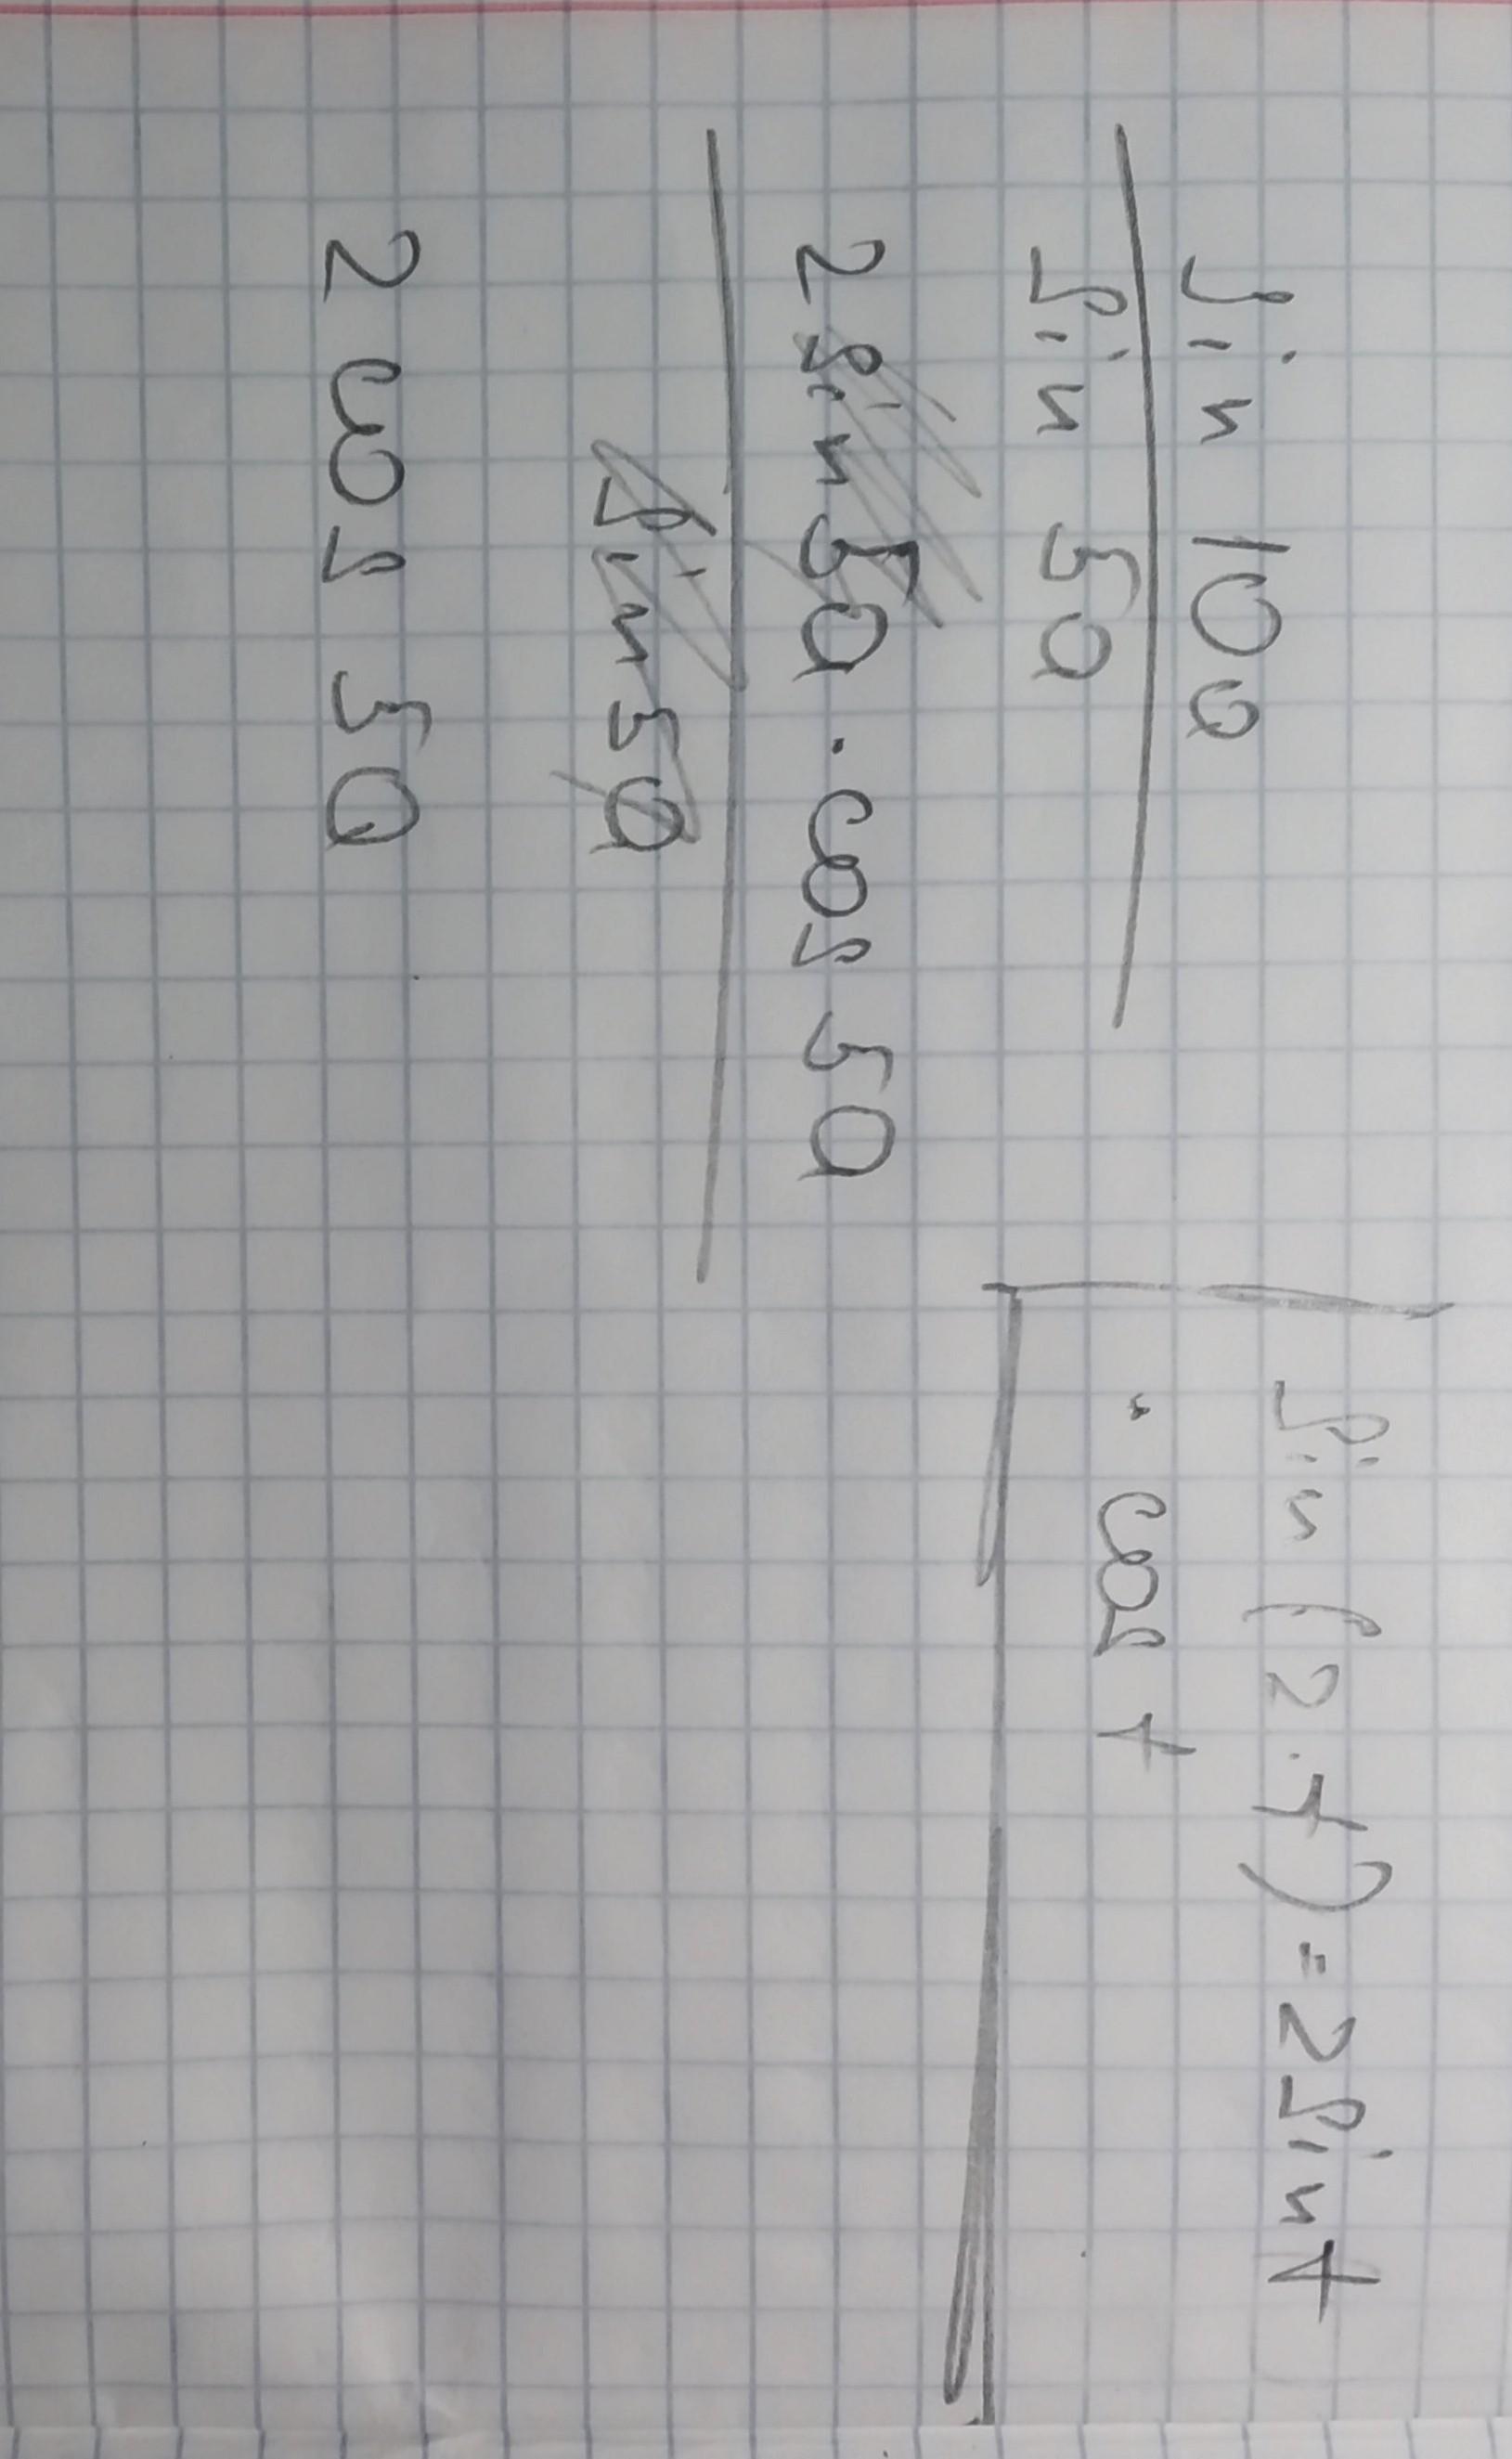 sin 100
sin 50
2 sin 50 · cos 50
sin 50
2 cos 50
sin (2·t) = 2 sin t
· cos t